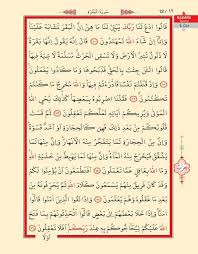 سورة البقرة
قَالُوا ادْعُ لَنَا رَبَّكَ يُبَيِّنْ لَنَا مَا هِيَ إِنَّ الْبَقَرَ تَشَابَهَ عَلَيْنَا
وَإِنَّا إِنْ شَاءَ اللَّهُ لَمُهْتَدُونَ قَالَ إِنَّهُ يَقُولُ إِنَّهَا بَقَرَةٌ
لَا ذَلُولٌ تُثِيرُ الْأَرْضَ وَلَا تَسْقِي الْحَرْثَ مُسَلَّمَةٌ لَا شِيَةَ
فِيهَا قَالُوا الْآنَ جِئْتَ بِالْحَقِّ فَذَبَحُوهَا وَمَا كَادُوا يَفْعَلُونَ
وَإِذْ قَتَلْتُمْ نَفْسًا فَادَّارَأْتُمْ فِيهَا وَاللَّهُ مُخْرِجٌ مَا كُنْتُمْ تَكْتُمُونَ
فَقُلْنَا اضْرِبُوهُ بِبَعْضِهَا كَذَلِكَ يُحْيِي اللَّهُ الْمَوْتَى
وَيُرِيكُمْ آيَاتِهِ لَعَلَّكُمْ تَعْقِلُونَ ثُمَّ قَسَتْ قُلُوبُكُمْ
مِنْ بَعْدِ ذَلِكَ فَهِيَ كَالْحِجَارَةِ أَوْ أَشَدُّ قَسْوَةً وَإِنَّ
مِنَ الْحِجَارَةِ لَمَا يَتَفَجَّرُ مِنْهُ الْأَنْهَارُ وَإِنَّ مِنْهَا لَمَا
يَشَّقَّقُ فَيَخْرُجُ مِنْهُ الْمَاءُ وَإِنَّ مِنْهَا لَمَا يَهْبِطُ مِنْ خَشْيَةِ
اللَّهِ وَمَا اللَّهُ بِغَافِلٍ عَمَّا تَعْمَلُونَ أَفَتَطْمَعُونَ أَنْ
يُؤْمِنُوا لَكُمْ وَقَدْ كَانَ فَرِيقٌ مِنْهُمْ يَسْمَعُونَ كَلَامَ اللَّهِ
ثُمَّ يُحَرِّفُونَهُ مِنْ بَعْدِ مَا عَقَلُوهُ وَهُمْ يَعْلَمُونَ وَإِذَا لَقُوا الَّذِينَ آمَنُوا قَالُوا
آمَنَّا وَإِذَا خَلَا بَعْضُهُمْ إِلَى بَعْضٍ قَالُوا أَتُحَدِّثُونَهُمْ بِمَا فَتَحَ
اللَّهُ عَلَيْكُمْ لِيُحَاجُّوكُمْ بِهِ عِنْدَ رَبِّكُمْ أَفَلَا تَعْقِلُونَ